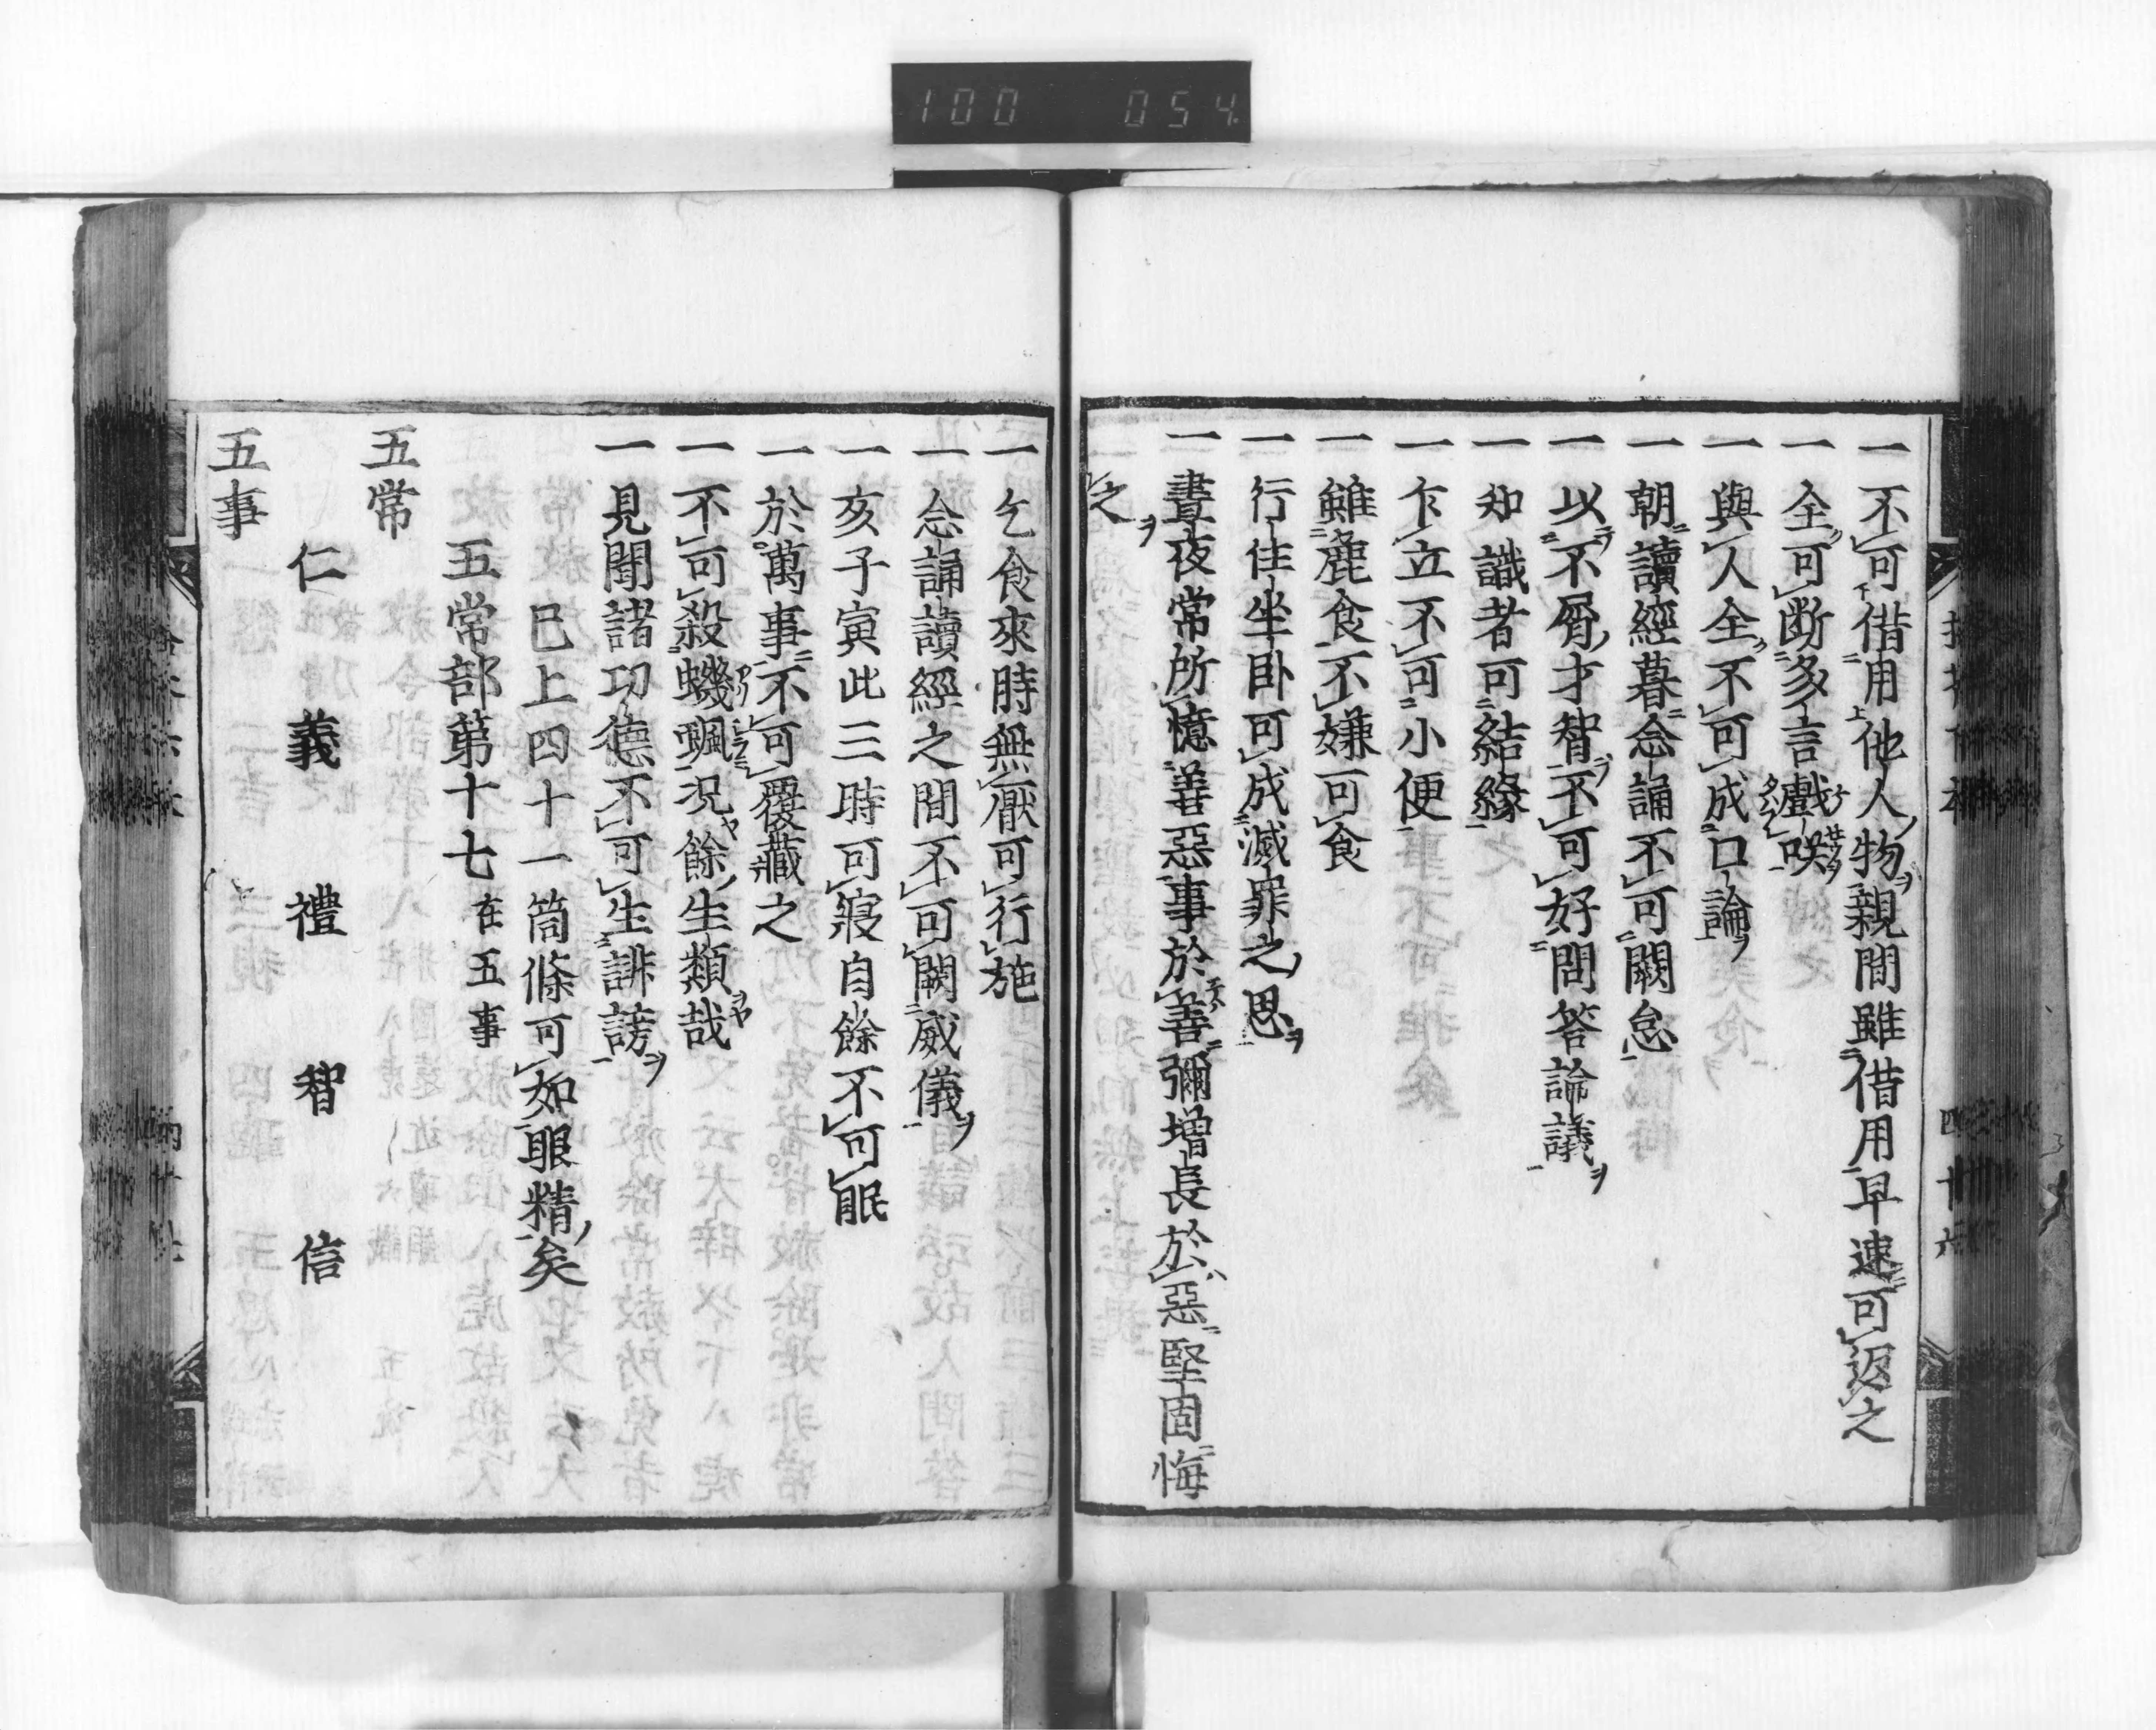 100 054.
一不可借用他人物親間雖借用早速可返之
一全可断多言戲咲
一與人全不可成口論
一朝讀經暮念誦不可闕怠
一以不屑才智不可好問答論議
一知識者可結緣
一乍立不可小便
一雖麁食不嫌可食
一行住坐臥可成滅罪之思
一晝夜常所憶善惡事於善彌增長於惡堅固悔
之
一乞食來時無厭可行施
一念誦讀經之間不可闕威儀
一亥子寅此三時可寢自餘不可眠
一於萬事不可覆藏之
一不可殺蟣䖝況餘生類哉
一見聞諸功德不可生誹謗
已上四十一箇條可如眼精矣
五常部第十七在五事
五常
仁義禮智信
五事